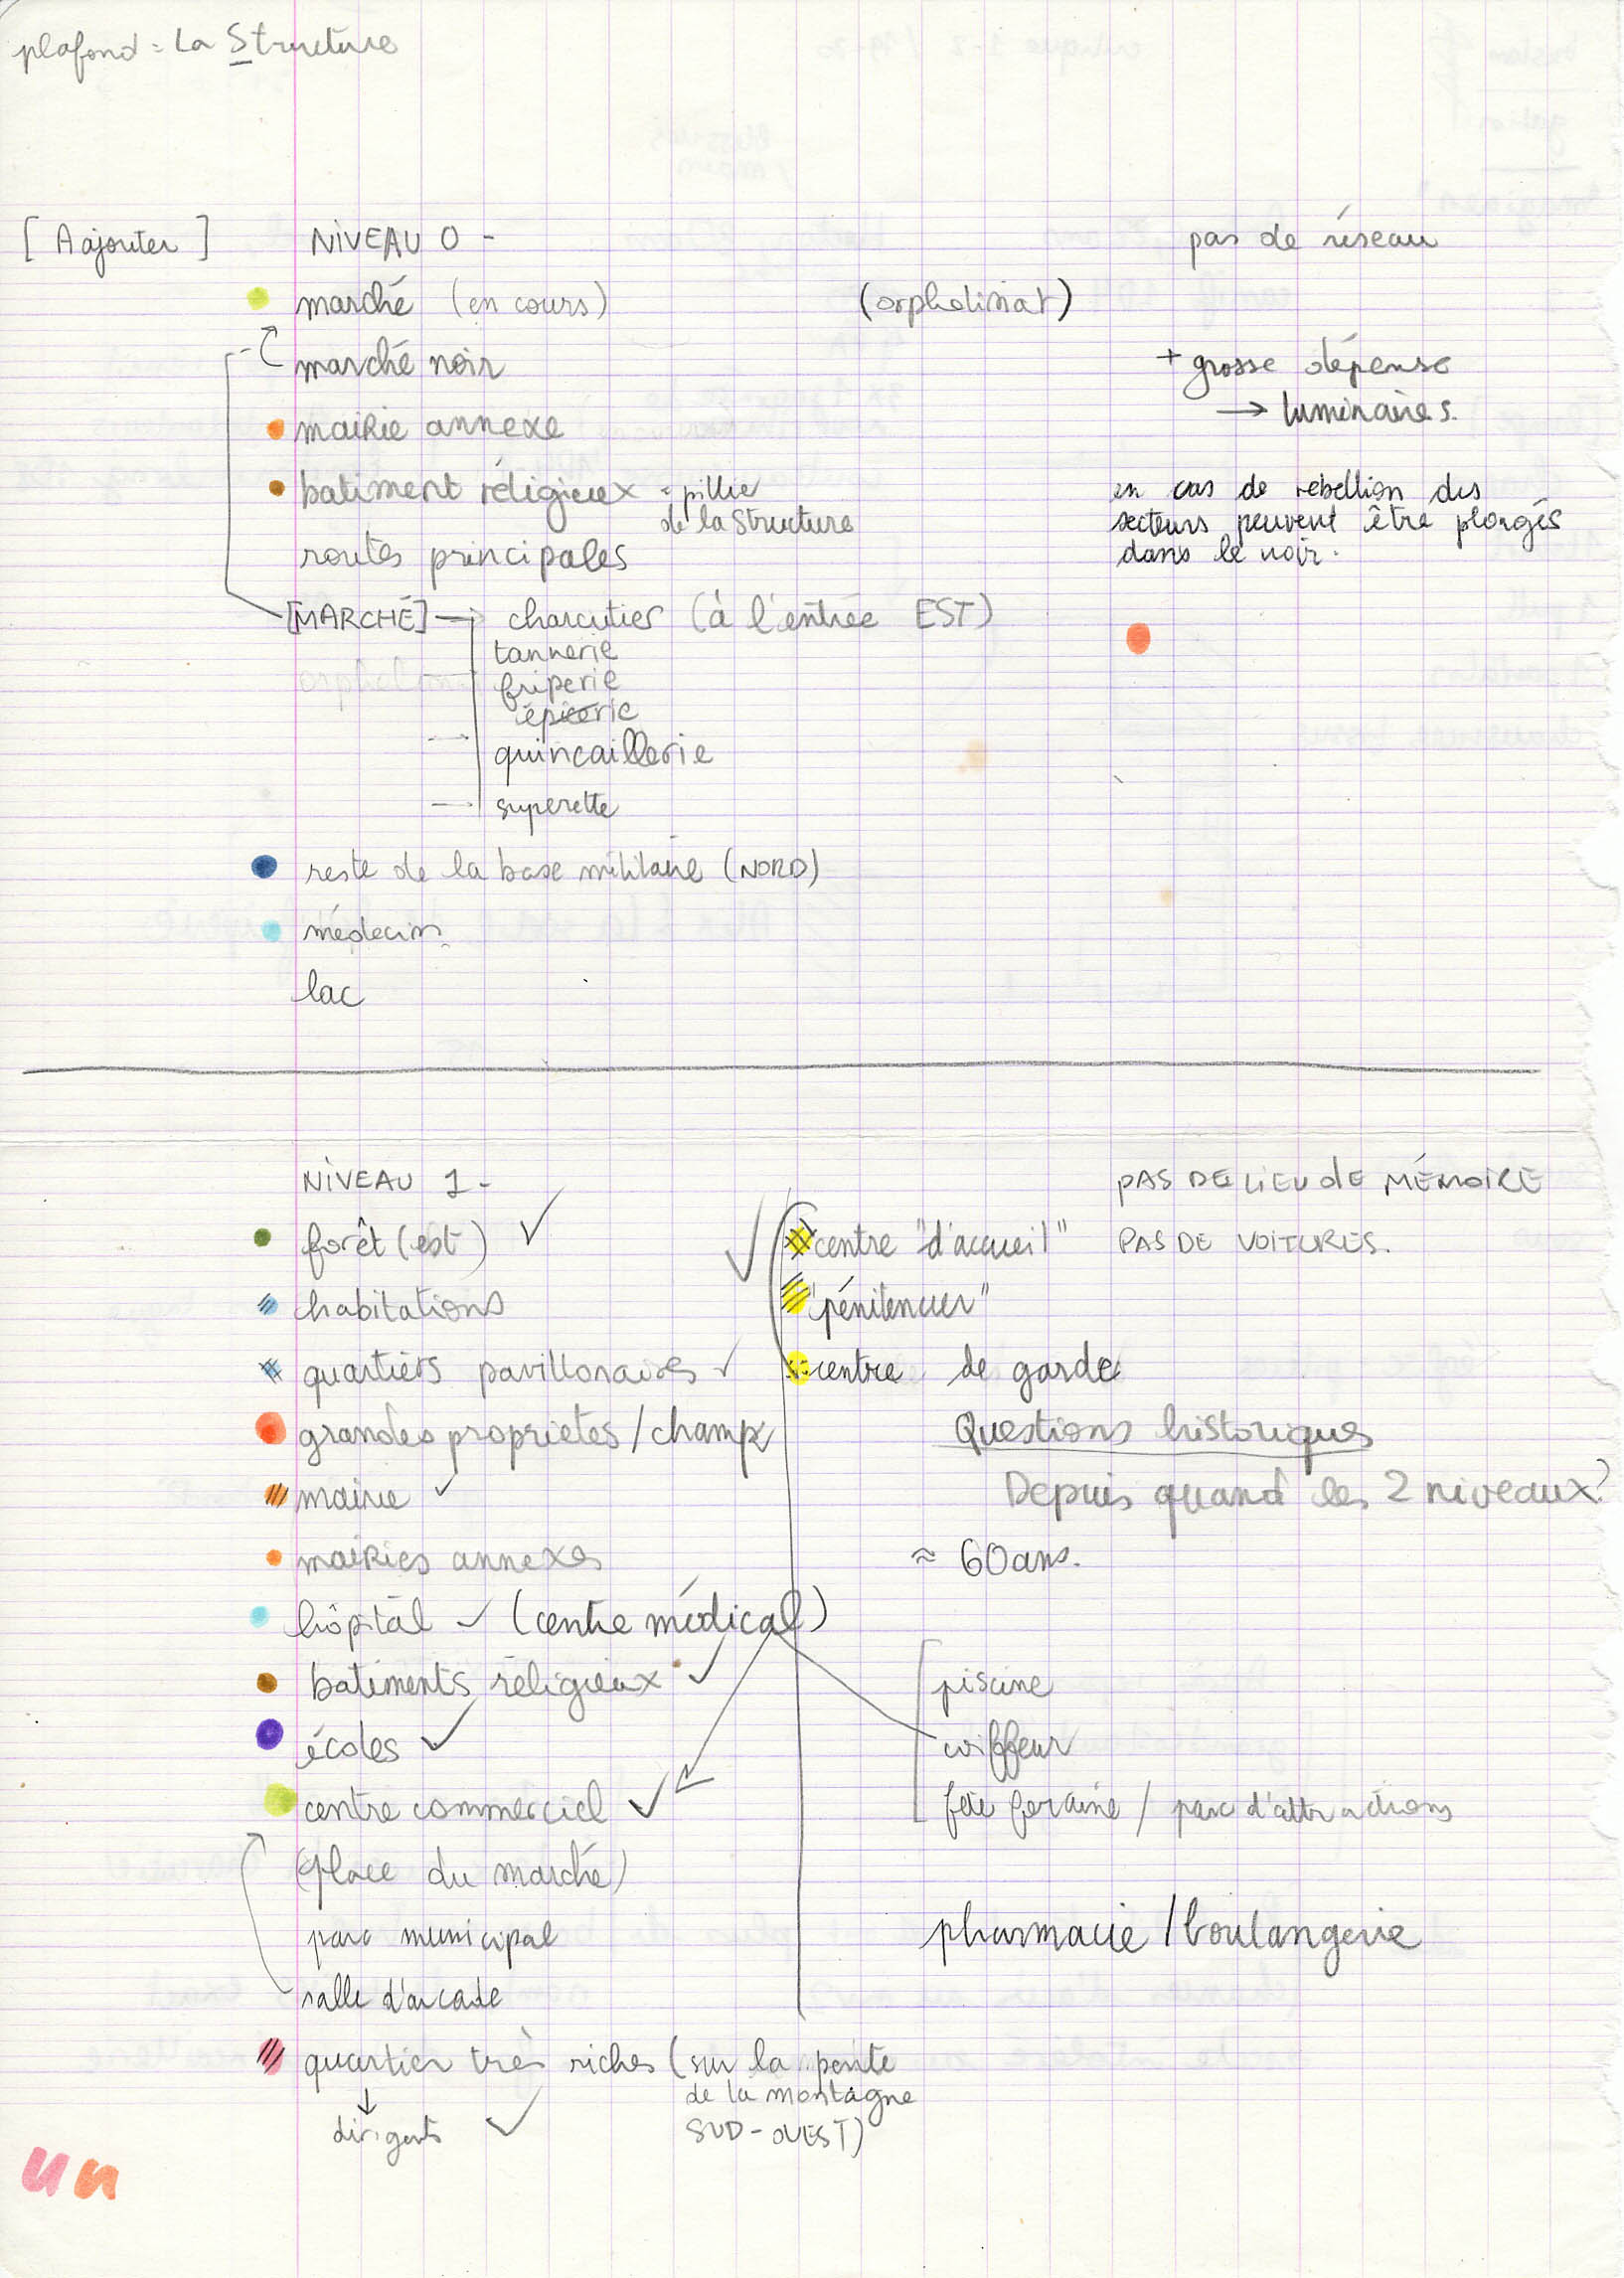 plafond = La Structure
[A ajouter]
NIVEAU 0 -
pas de réseau
marché (en cours)
(orphelinat)
marché noir
+ grosse dépense
→ luminaires.
mairie annexe
batiment réligieux = pillier
de la Structure
en cas de rebellion des
secteurs peuvent être plongés
dans le noir.
routes principales
[MARCHÉ] → charcutier (à l'entrée EST)
tannerie
friperie
épicerie
quincaillerie
superette
reste de la base militaire (NORD)
médecin
lac
NIVEAU 1 -
PAS DE LIEU de MÉMOIRE
forêt (est) ✓
✓ centre "d'accueil"
PAS DE VOITURES.
habitations
"pénitencier"
quartiers pavillonaires ✓
centre de garde
grandes proprietés / champs
Questions historiques
mairie ✓
Depuis quand les 2 niveaux?
mairies annexes
≈ 60 ans.
hôpital ✓ (centre médical)
batiments réligieux ✓
piscine
écoles ✓
coiffeur
centre commercial ✓
fête foraine / parc d'attractions
(place du marché)
parc municipal
pharmacie / boulangerie
salle d'arcade
quartier très riches (sur la pente
de la montagne
SUD-OUEST)
↓
dirigents ✓